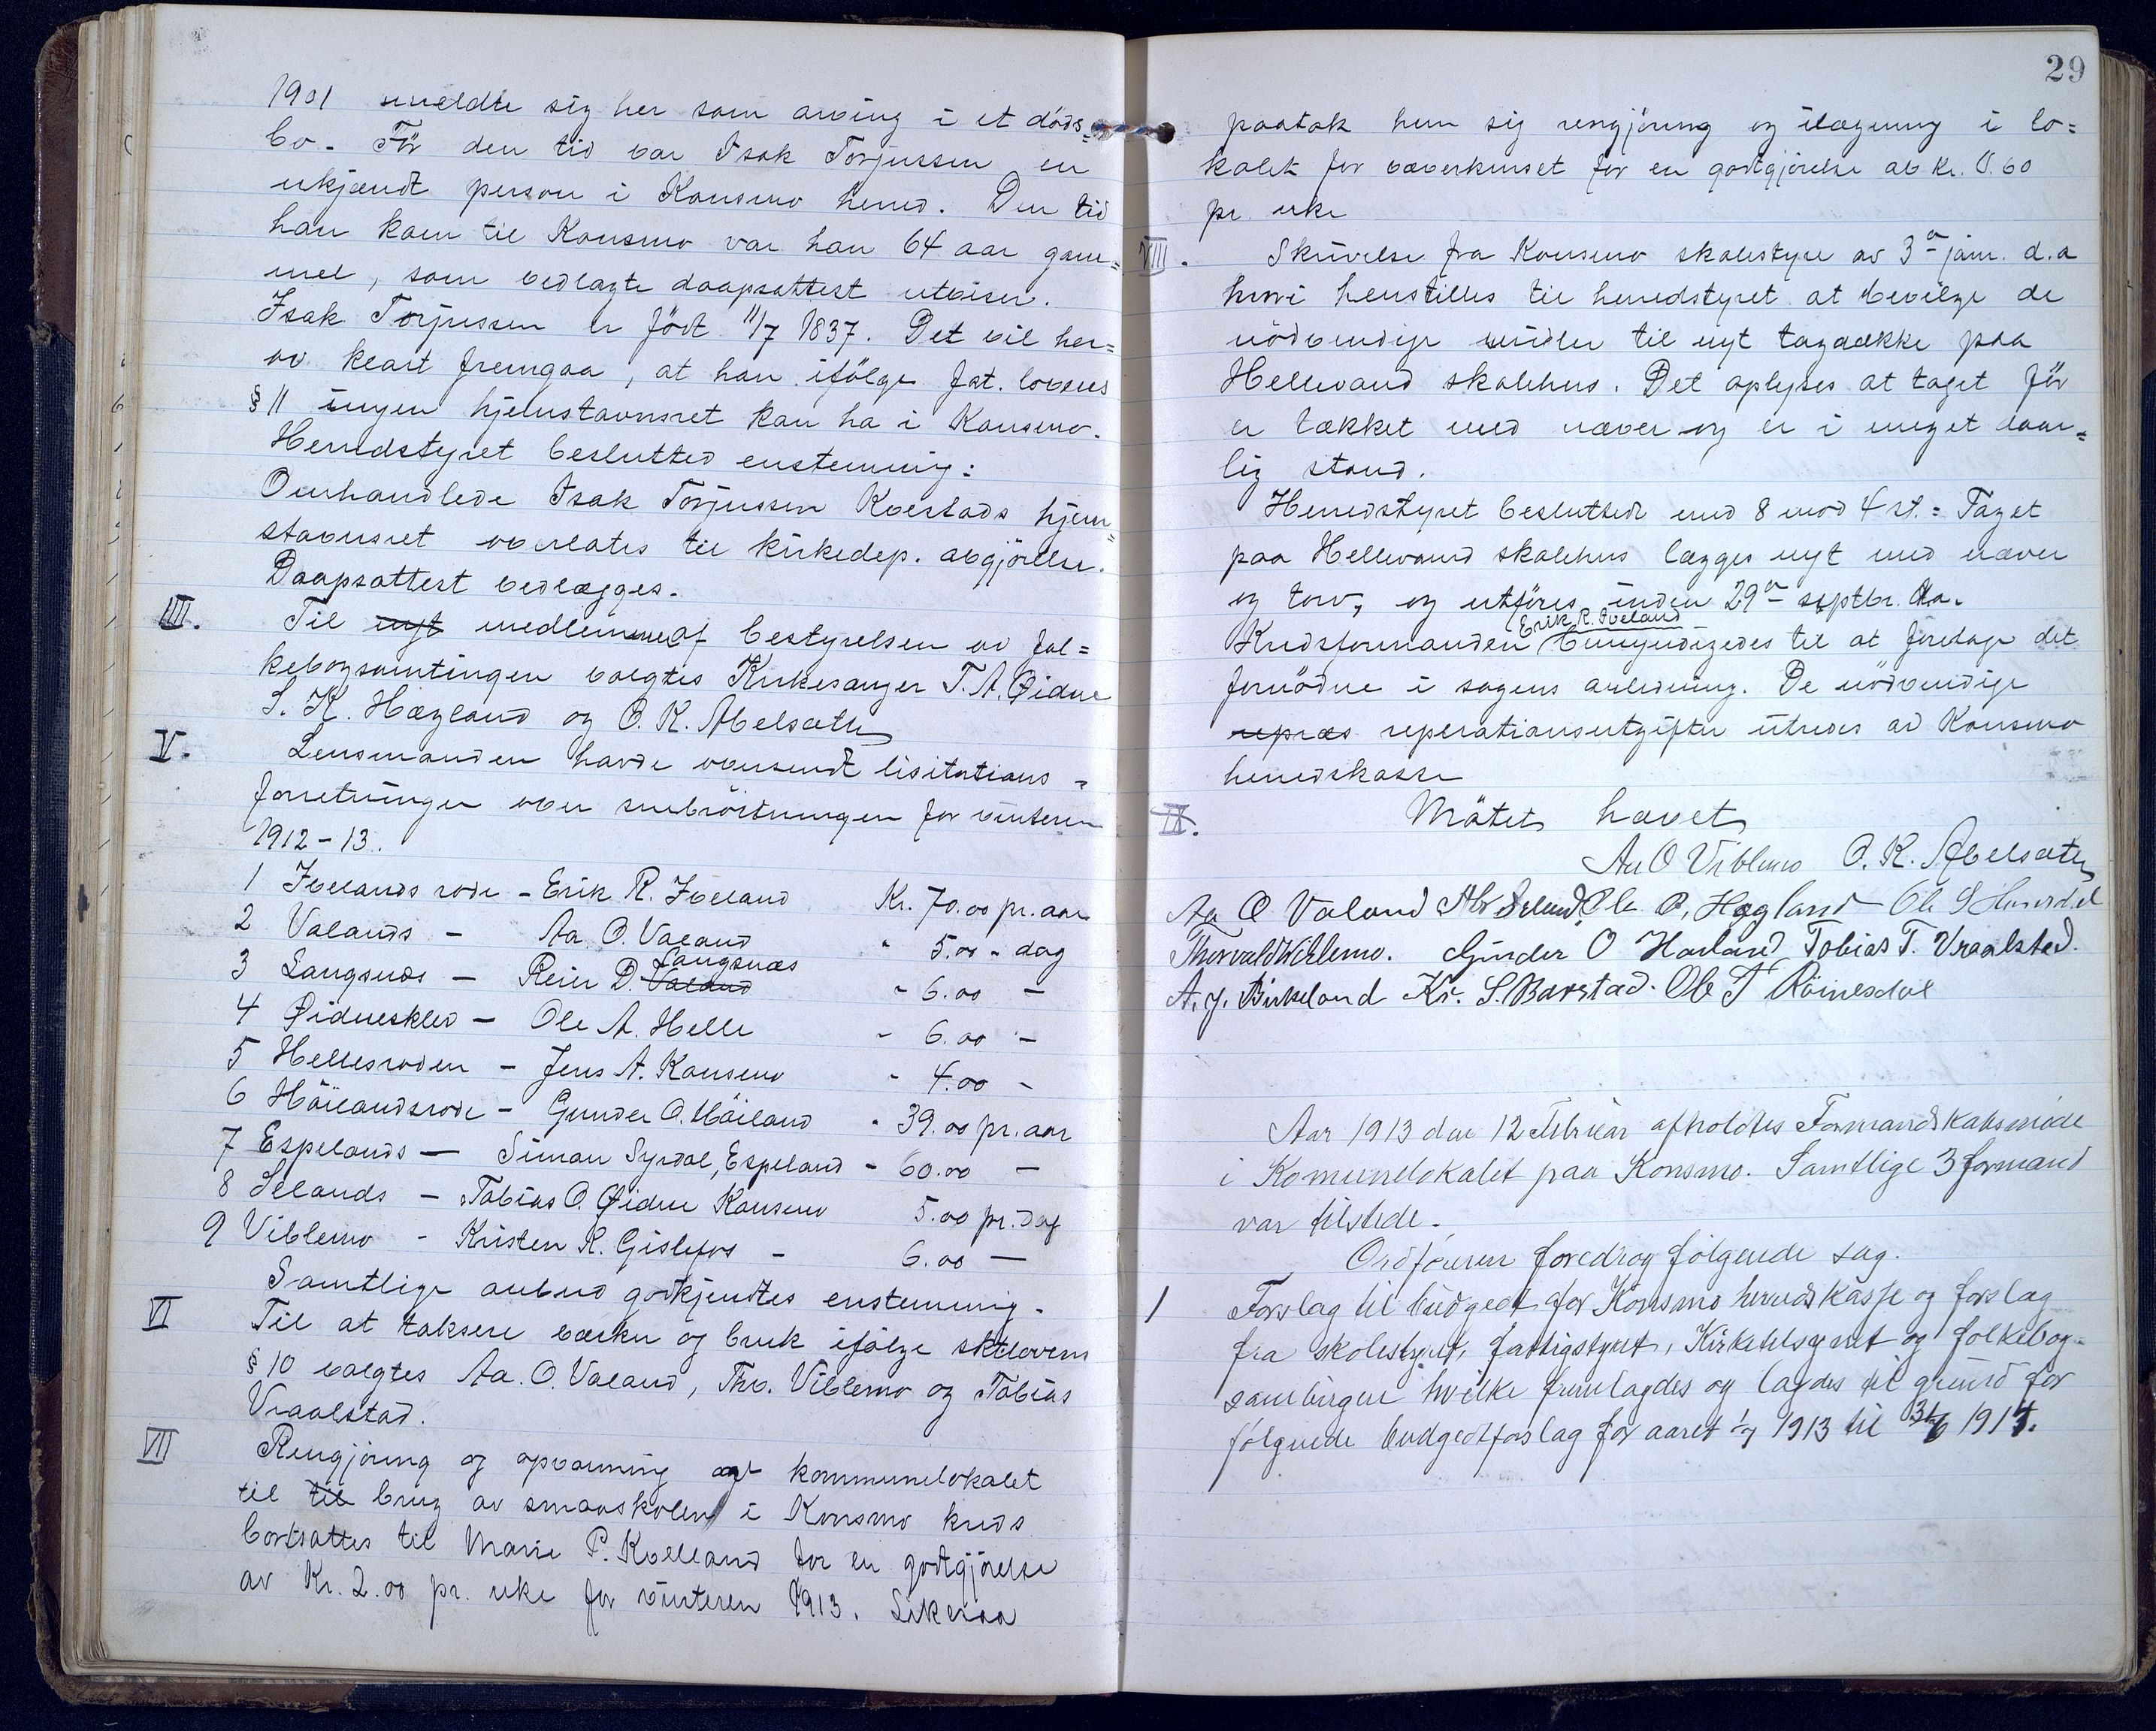 1901 meldte sig her som arving i et döds=
bo. För den tid var Isak Torjussen en
ukjendt person i Konsmo herred. Den tid
han kom til Konsmo var han 64 aar gam=
mel, som vedlagte daapsattest utviser.
Isak Torjussen er född 11/7 1837. Det vil her=
av klart fremgaa, at han ifölge fat. lovens
§ 11 ingen hjemstavnsret kan ha i Konsmo.
Herredstyret beslutted enstemmig:
Omhandlede Isak Torjussen Kvelstads hjem=
stavnsret overlates til kirkedep. avgjörelse.
Daapsattest vedlægges.
IIII. Til nyt medlemme af bestyrelsen av fol=
kebogsamlingen valgtes Kirkesanger T. A. Øidne
S. K. Hægland og O. K. Abelsæth
V. Lensmanden havde vansendt lisitations=
forretninger over snebröitningen for vinteren
1912-13.
1 Ivelands rode - Erik R. Iveland Kr. 70.00 pr. aar
2 Valands - Aa. O. Valand " 5.00 - dag
Langsnæs
3 Langsnæs - Reier D. Valand - 6.00 -
4 Øidneskleiv - Ole A. Helle - 6.00 -
5 Hellesroden - Jens A. Konsmo - 4.00 -
6 Höilandsrode - Gunder O. Höiland - 39.00 pr. aar
7 Espelands - Simon Syrdal, Espeland - 60.00 -
8 Selands - Tobias O. Øidne Konsmo 5.00 pr. dag
9 Viblemo - Kristen K. Gislefos - 6.00 -
Samtlige anbud godkjendtes enstemmig.
VI Til at taksere verker og bruk ifölge sktlovens
§ 10 valgtes Aa. O. Valand, Tho. Viblemo og Tobias
Vraalstad.
VII Rengjöring og opvarming av kommunelokalet
til til brug av smaaskolen i Konsmo kreds
bortsattes til Marie P. Kvelland for en godtgjörelse
av Kr. 2.00 pr. uke for vinteren 1913. Likesaa
29
paatok hun sig rengjöring og ilægning i lo=
kalet for væverkurset for en godtgjörelse av kr. 0.60
pr. uke
VIII. Skrivelse fra Konsmo skolestyre av 3die jan. d.a
hvori henstilles til herredstyret at bevilge de
nödvendige midler til nyt tagdække paa
Hellevand skolehus. Det oplyses at taget för
er tækket med næver og er i meget daar=
lig stand.
Herredstyret besluttede med 8 mod 4 st. = Taget
paa Hellevand skolehus lægges nyt med næver
og torv, og utföres inden 29de septbr. d.a.
Erik R. Iveland
Kredsformanden bemyndigedes til at foretage det
fornödne i sagens anledning. De nödvendige
repræs reperationsutgifter utredes av Konsmo
herredskasse
IX. Mötet hævet
Aa O Viblemo O. K. Abelsæth
Aa O Valand Ab Seland Ole B, Hægland Ole S
Thorvald Viblemo. Gunder O Höiland Tobias T. Vraalstad.
A. J. Birkeland Kr. S. Barstad. Ole T Röinesdal
Aar 1913 den 12 Februar afholdtes Formandskabsmöde
i Komunelokalet paa Konsmo. Samtlige 3 formænd
var tilstede.
Ordföreren foredrog fölgende sag.
1 Forslag til budgedt for Konsmo herredskasse og forslag
fra skolestyret, fattigstyret, Kirketilsynet og folkebog-
samlingen hvilke fremlagdes og lagdes til grund for
fölgende budgedtforslag for aaret 1/7 1913 til 31/6 1914.